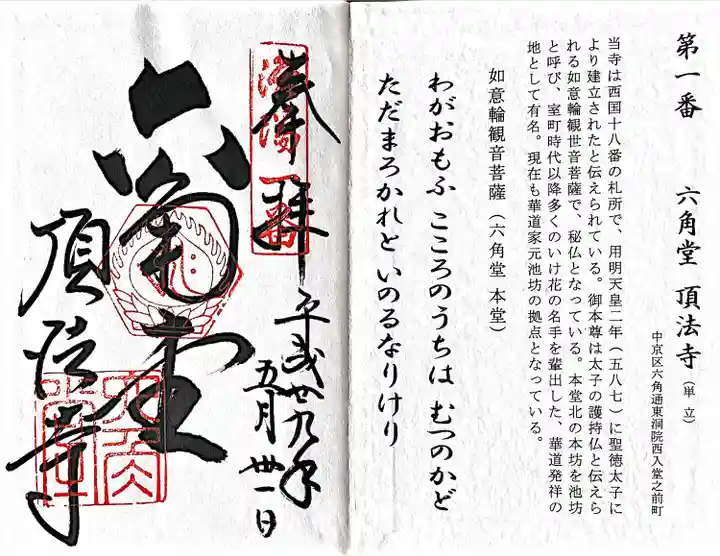 第一番 六角堂 頂法寺（単立）
中京区六角通東洞院西入堂之前町
当寺は西国十八番の札所で、用明天皇二年（五八七）に聖徳太子に
より建立されたと伝えられている。御本尊は太子の護持仏と伝えら
れる如意輪観世音菩薩で、秘仏となっている。本堂北の本坊を池坊
と呼び、室町時代以降多くのいけ花の名手を輩出した、華道発祥の
地として有名。現在も華道家元池坊の拠点となっている。
如意輪観音菩薩（六角堂 本堂）
わがおもふ こころのうちは むつのかど
ただまろかれと いのるなりけり
奉拝
洛陽一番
平成廿九年
五月卅一日
六角堂
頂法寺